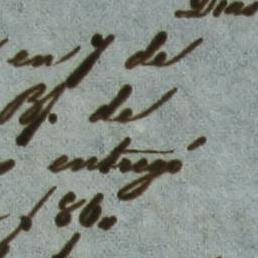 Dias
en 7 de
Bs. de
entregó
$ 86.